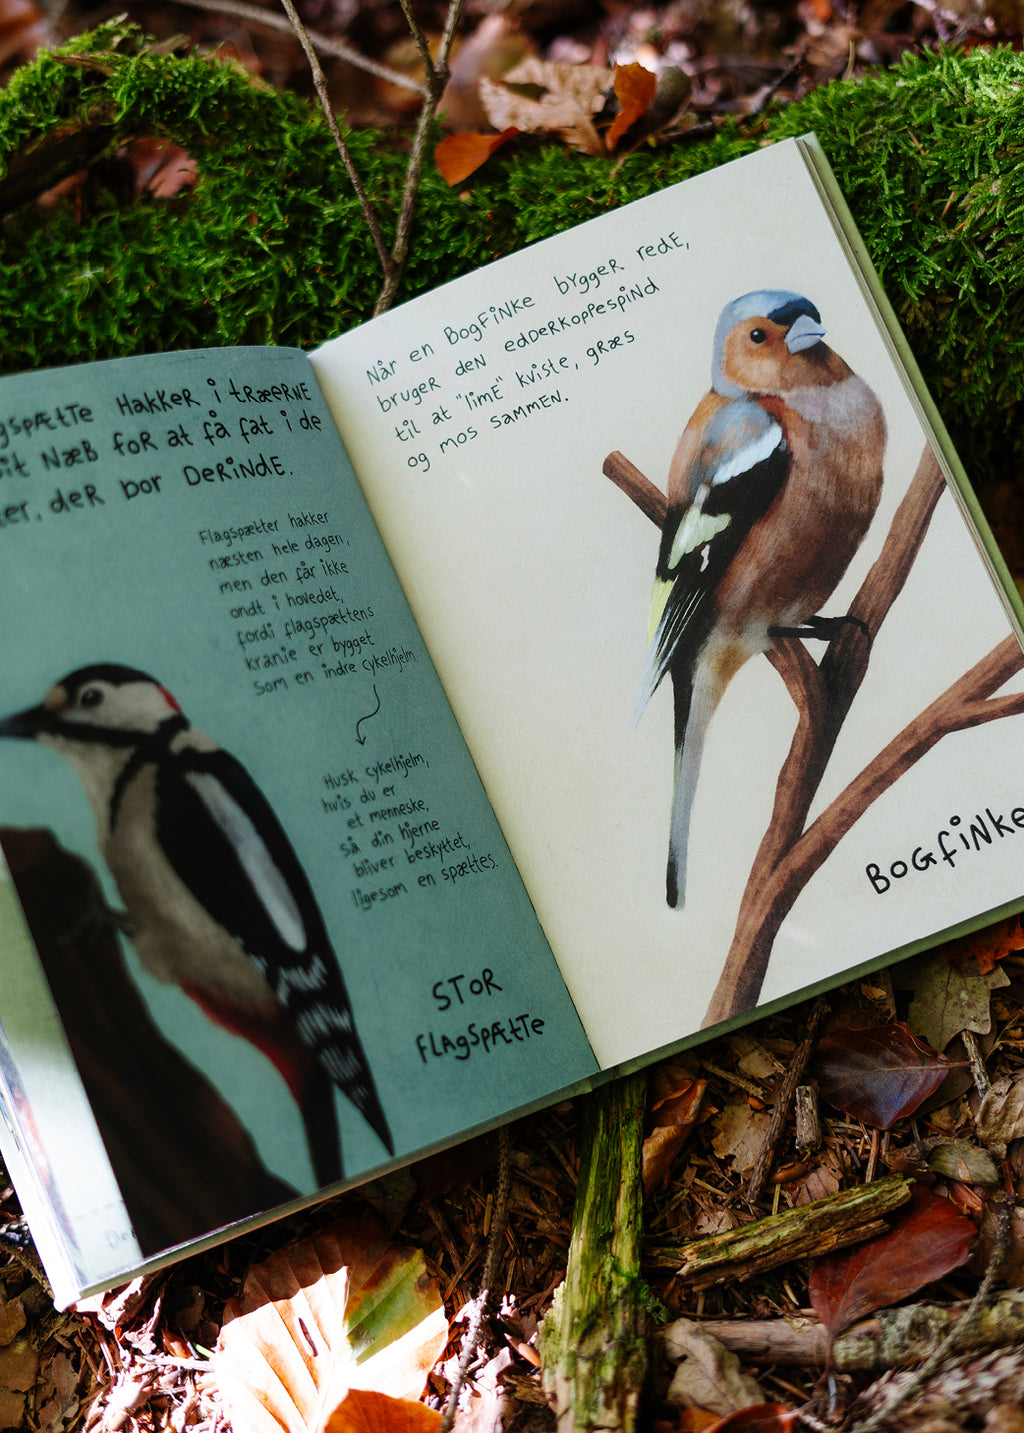 Hakker i træerne
Næb for at få fat i de
der bor derinde.
Flagspætter hakker
næsten hele dagen,
men den får ikke
ondt i hovedet,
fordi flagspættens
kranie er bygget
som en indre cykelhjelm.
Husk cykelhjelm,
hvis du er
et menneske,
så din hjerne
bliver beskyttet,
ligesom en spættes.
Stor
Flagspætte
Når en Bogfinke bygger rede,
bruger den edderkoppespind
til at "lime" kviste, græs
og mos sammen.
Bogfinke